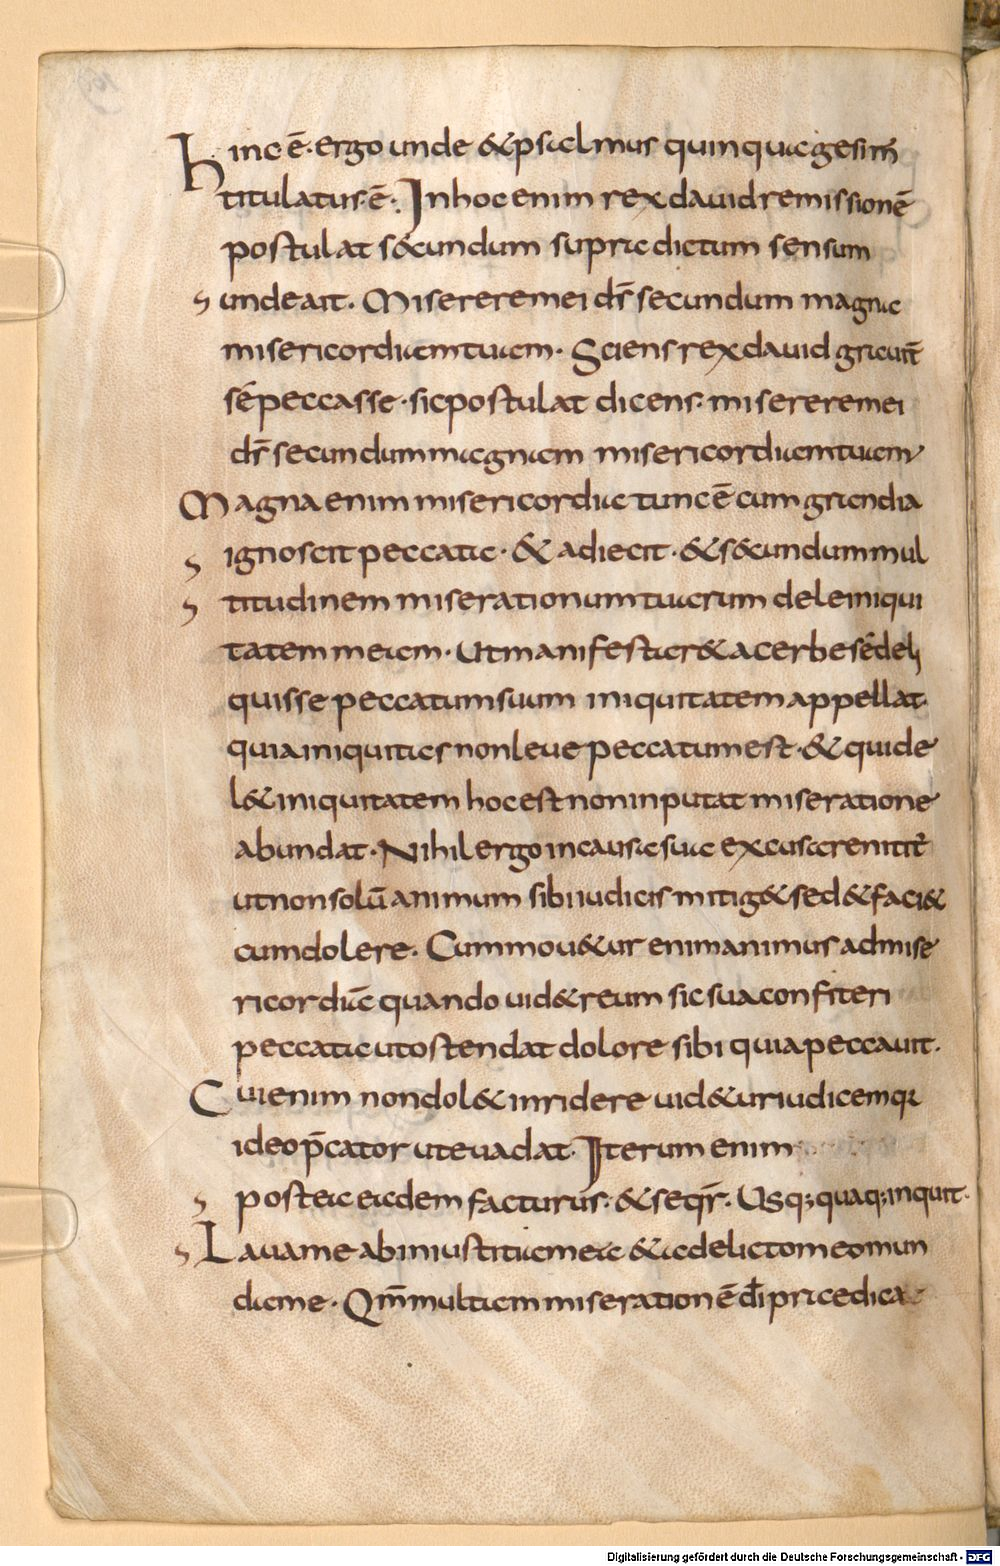 Hinc ē· ergo unde & psalmus quinquagesim̄
titulatus· ē·. In hoc enim rex dauid remissionē
postulat s&cundum supra dictum sensum
unde ait· Miserere mei d̄s secundum magna
misericordiam tuam· Sciens rex dauid grauit̄
sé peccasse· sic postulat dicens· miserere mei
d̄s secundum magnam misericordiam tuam
Magna enim misericordia tunc ē cum grandia
ignoscit peccata· & adiecit· & s&cundum mul
titudinem miserationum tuarum dele iniqui
tatem meam· Ut manifestar& acerbe sé deli
quisse peccatum suum iniquitatem appellat·
quia iniquitas non leue peccatum est· & qui de
l& iniquitatem hoc est non inputat miseratione
abundat· Nihil ergo in causa sua excusare nitit̄
ut non solū animum sibi iudicis mitig& sed & faci&
cum dolere· Cum mou&ur enim animus ad mise
ricordiā quando uid& reum sic sua confiteri
peccata ut ostendat dolore sibi quia peccauit·
Cui enim non dol& inridere uid&ur iudicemq;
ideo p̄cator ut euadat· Iterum enim
postea eadem facturus· & seqr̄· Usq; quaq; inquit·
Laua me ab iniustitia mea & a delicto meo mun
da me· Qm̄ multam miserationē d̄i praedica
Digitalisierung gefördert durch die Deutsche Forschungsgemeinschaft - DFG